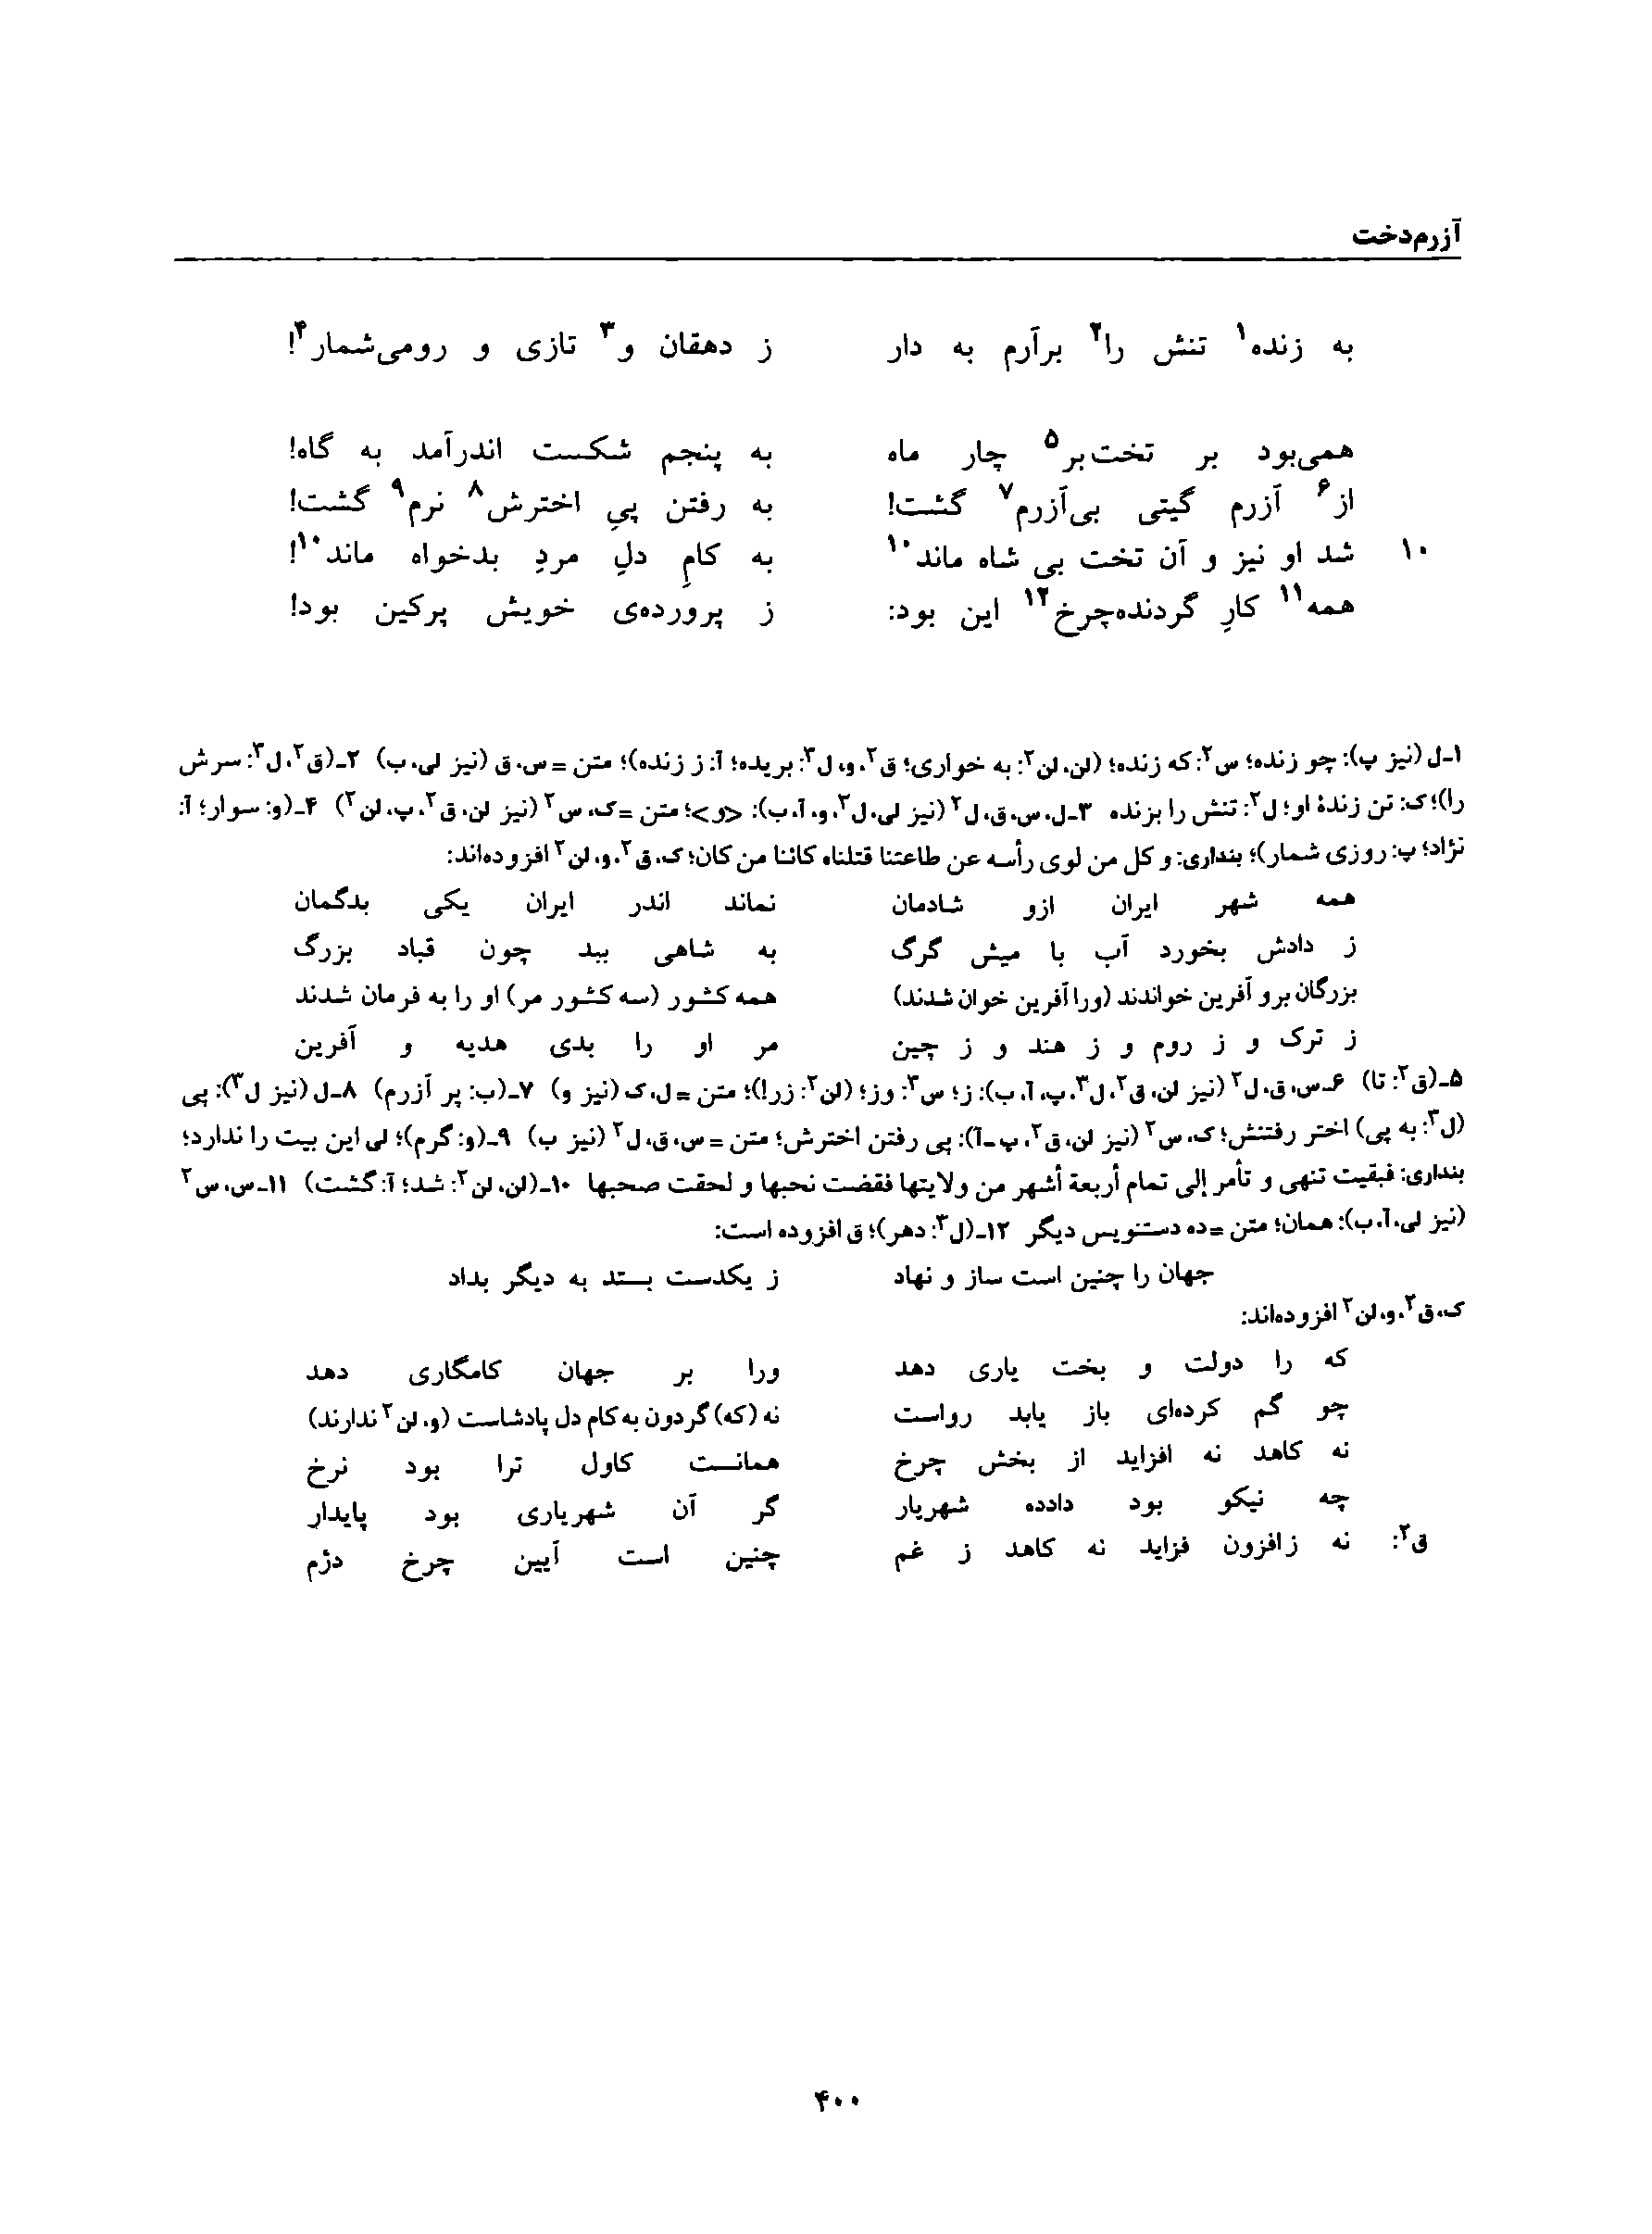 آزرم‌دخت
به زنده۱ تنش را۲ برآرم به دار ز دهقان و۳ تازی و رومی‌شمار۴!
همی‌بود بر تخت‌بر۵ چار ماه به پنجم شکست اندرآمد به گاه!
از۶ آزرم گیتی بی‌آزرم۷ گشت! به رفتن پیِ اخترش۸ نرم۹ گشت!
۱۰ شد او نیز و آن تخت بی شاه ماند۱۰ به کامِ دلِ مردِ بدخواه ماند۱۰!
همه۱۱ کارِ گردنده‌چرخ۱۲ این بود: ز پرورده‌ی خویش پرکین بود!
۱-ل (نیز پ): چو زنده؛ س۲: که زنده؛ (لن، لن۲: به خواری؛ ق۲، و، ل۳: بریده؛ آ: ز زنده)؛ متن = س، ق (نیز لی، ب) ۲-(ق۲، ل۳: سرش
را)؛ ک: تن زندهٔ او؛ ل۲: تنش را بزنده ۳-ل، س، ق، ل۲ (نیز لی، ل۳، و، آ، ب): <و>؛ متن =ک، س۲ (نیز لن، ق۲، پ، لن۲) ۴-(و: سوار؛ آ:
نژاد؛ پ: روزی شمار)؛ بنداری: و کل من لوی رأسه عن طاعتنا قتلناه کائنا من کان؛ ک، ق۲، و، لن۲ افزوده‌اند:
همه شهر ایران ازو شادمان نماند اندر ایران یکی بدگمان
ز دادش بخورد آب با میش گرگ به شاهی ببد چون قباد بزرگ
بزرگان برو آفرین خواندند (ورا آفرین خوان شدند) همه کشور (سه کشور مر) او را به فرمان شدند
ز ترک و ز روم و ز هند و ز چین مر او را بدی هدیه و آفرین
۵-(ق۲: تا) ۶-س، ق، ل۲ (نیز لن، ق۲، ل۳، پ، آ، ب): ز؛ س۲: وز؛ (لن۲: زرا)؛ متن = ل، ک (نیز و) ۷-(ب: پر آزرم) ۸-ل (نیز ل۳): پی
(ل۳: به پی) اختر رفتنش؛ ک، س۲ (نیز لن، ق۲، پ-آ): پی رفتن اخترش؛ متن = س، ق، ل۲ (نیز ب) ۹-(و: گرم)؛ لی این بیت را ندارد؛
بنداری: فبقیت تنهی و تأمر إلی تمام أربعة أشهر من ولایتها فقضت نحبها و لحقت صحبها ۱۰-(لن، لن۲: شد؛ آ: گشت) ۱۱-س، س۲
(نیز لی، آ، ب): همان؛ متن = ده دستنویس دیگر ۱۲-(ل۳: دهر)؛ ق افزوده است:
جهان را چنین است ساز و نهاد ز یکدست بستد به دیگر بداد
ک، ق۲، و، لن۲ افزوده‌اند:
که را دولت و بخت یاری دهد ورا بر جهان کامگاری دهد
چو گم کرده‌ای باز یابد رواست نه (که) گردون به کام دل پادشاست (و، لن۲ ندارند)
نه کاهد نه افزاید از بخش چرخ همانست کاول ترا بود نرخ
چه نیکو بود دادده شهریار گر آن شهریاری بود پایدار
ق۲: نه زافزون فزاید نه کاهد ز غم چنین است آیین چرخ دژم
۴۰۰